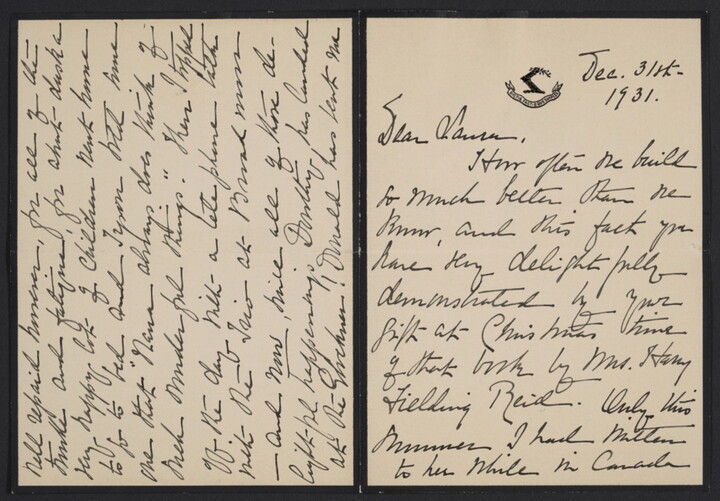 Dec. 31st-
1931.
Dear Laura,
How often we build
so much better than we
know, and this fact you
have very delightfully
demonstrated by your
gift at Christmas time
of that book by Mrs. Harry
Fielding Reid. Only this
summer I had written
to her while in Canada
well repaid however, for all of the
trouble and fatigue, for about dusk a
very happy lot of children went home
to go to bed and Tyson told
me that "Nana always does think of
such wonderful things." Then I topped
off the day with a telephone talk
with the Trio at Broadmoor
— and now, since all of those de-
lightful happenings Dorothy has landed
at the Glockner! Donald has sent me